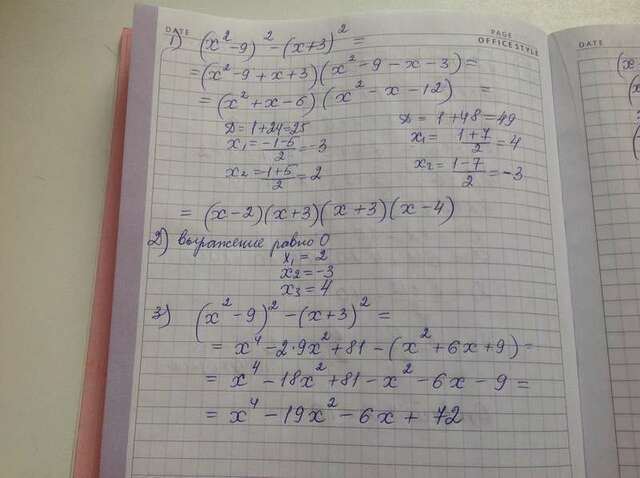 DATE
PAGE
OFFICE STYLE
DATE
1) (x²-9)² - (x+3)² =
= (x²-9+x+3)(x²-9-x-3) =
= (x²+x-6)(x²-x-12) =
D = 1+24=25
x₁ = (-1-5)/2 = -3
x₂ = (-1+5)/2 = 2
D = 1+48=49
x₁ = (1+7)/2 = 4
x₂ = (1-7)/2 = -3
= (x-2)(x+3)(x+3)(x-4)
2) выражение равно 0
x₁ = 2
x₂ = -3
x₃ = 4
3) (x²-9)² - (x+3)² =
= x⁴ - 2·9x² + 81 - (x²+6x+9) =
= x⁴ - 18x² + 81 - x² - 6x - 9 =
= x⁴ - 19x² - 6x + 72